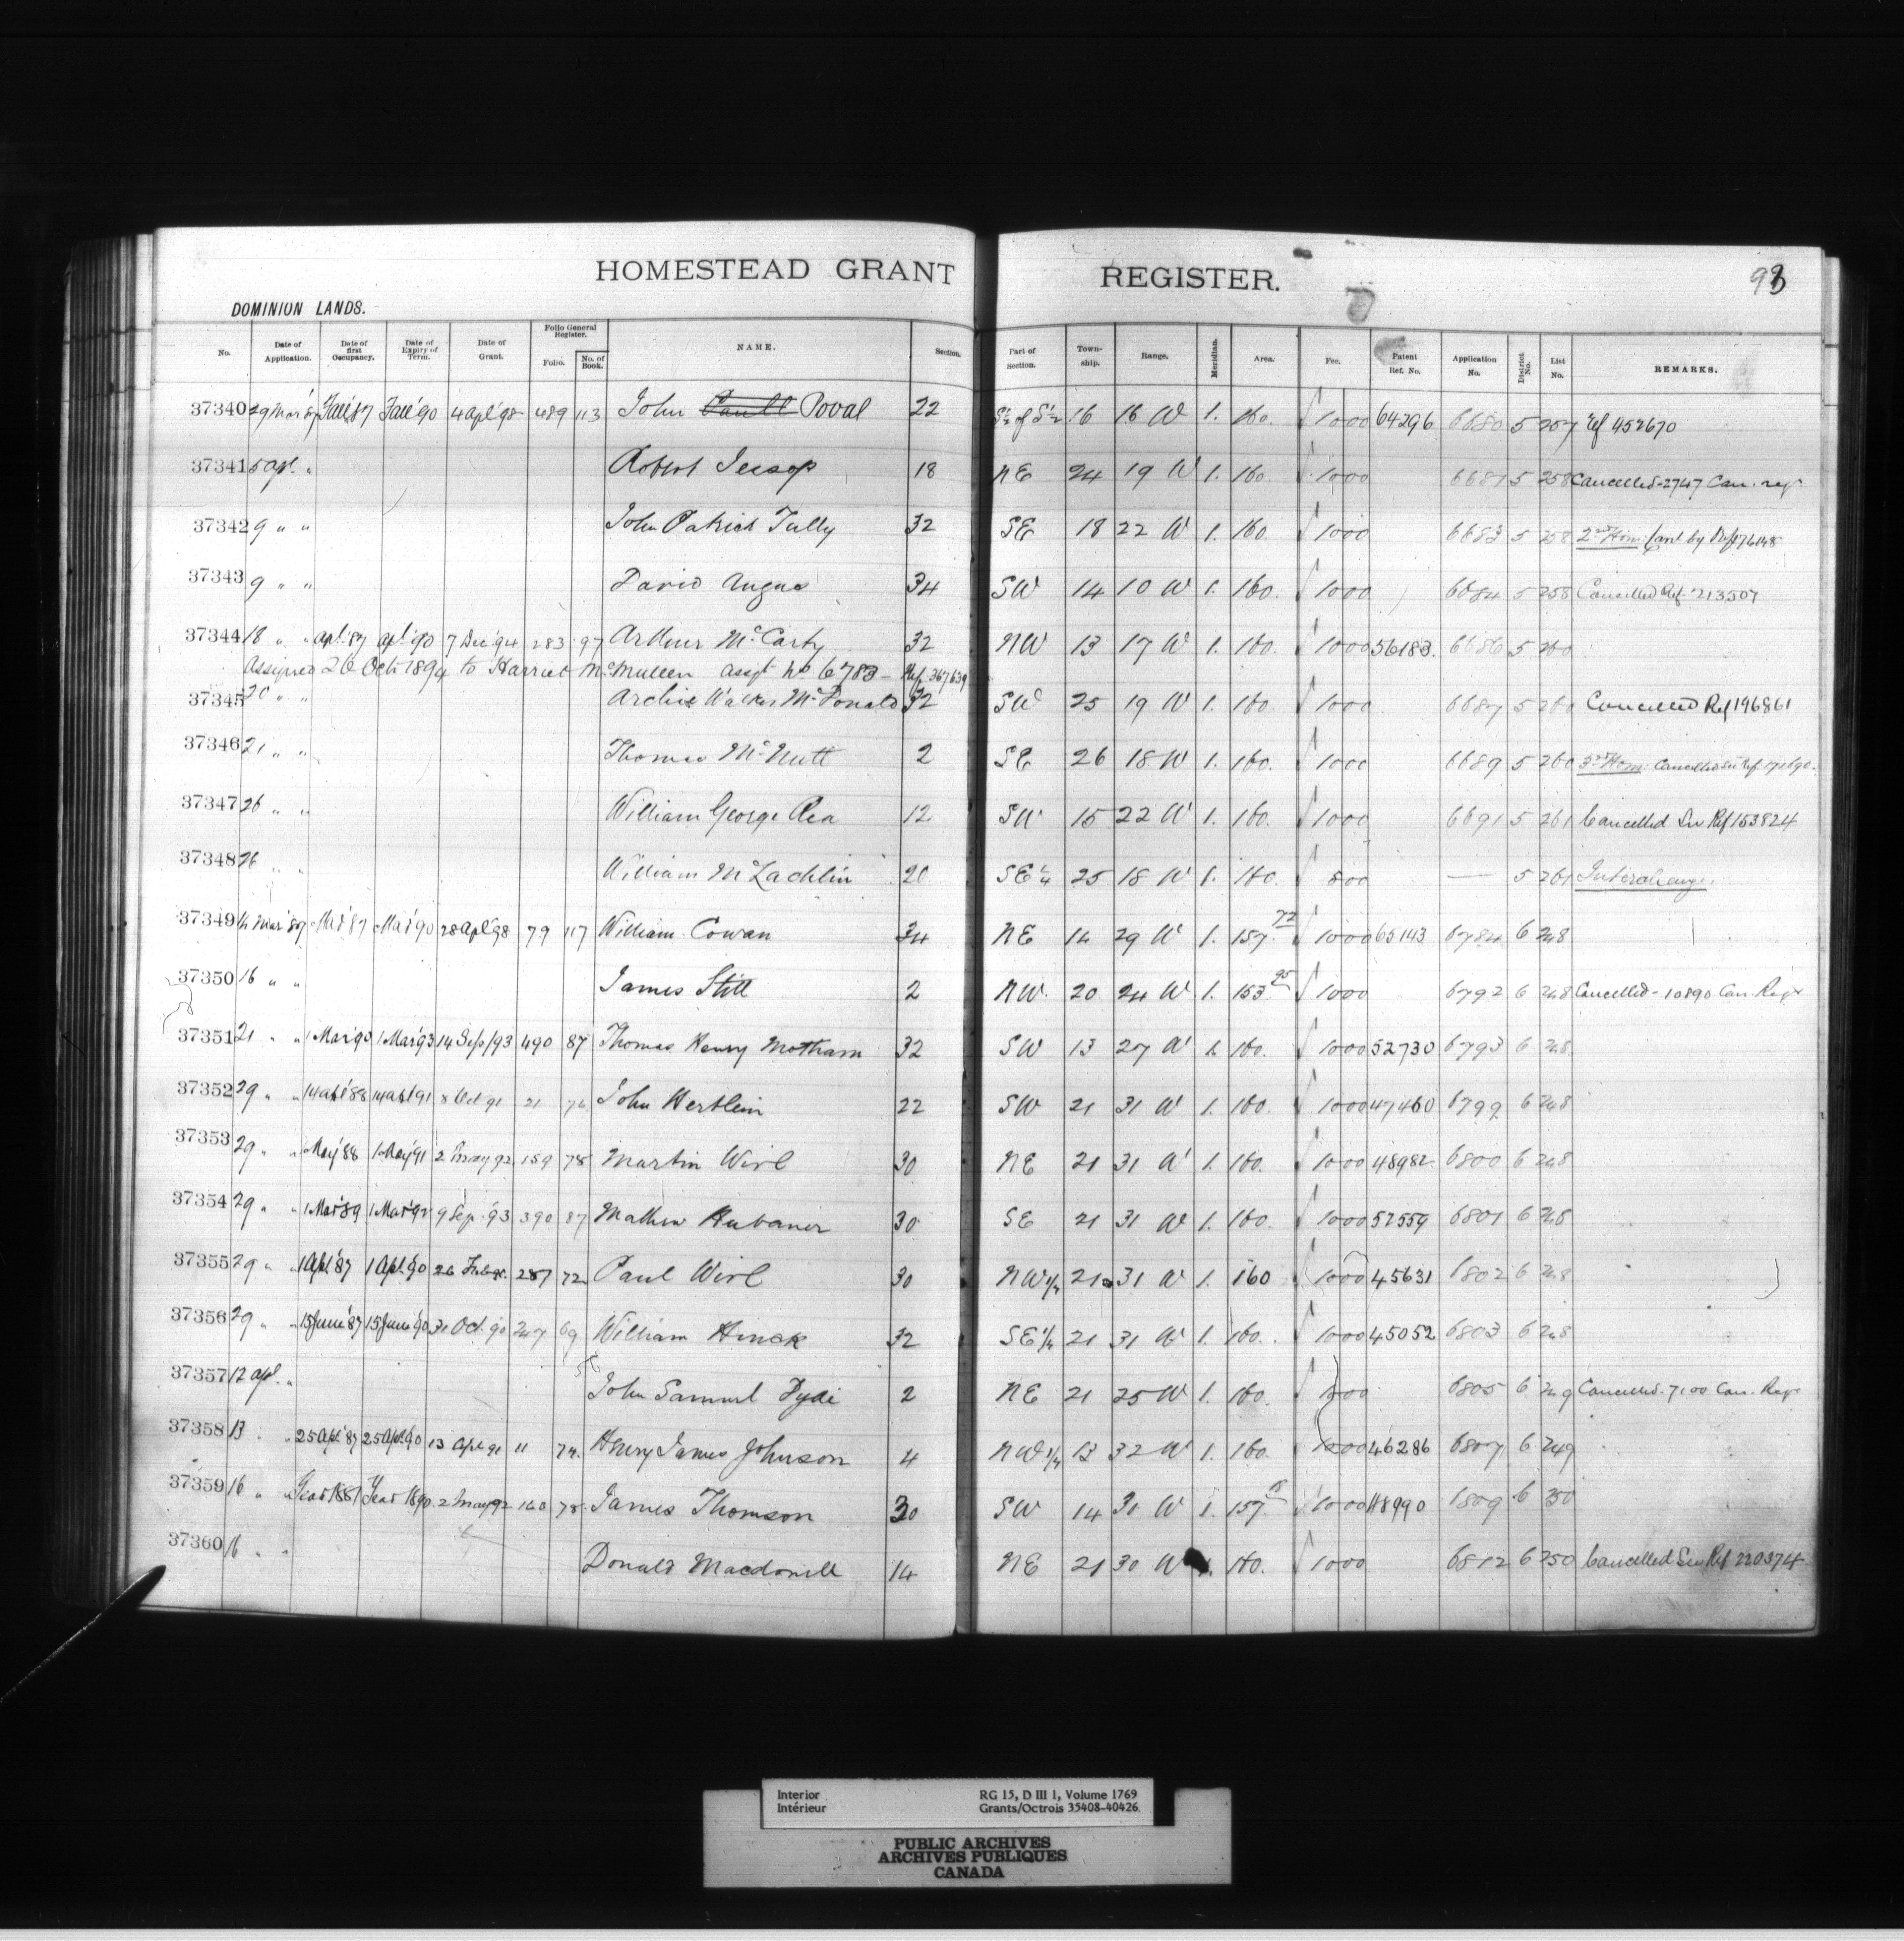 HOMESTEAD GRANT REGISTER. 93
DOMINION LANDS.
No. Date of Application. Date of first Occupancy. Date of Expiry of Term. Date of Grant. Folio General Register. Folio. No. of Book. NAME. Section. Part of Section. Township. Range. Meridian. Area. Fee. Patent Ref. No. Application No. District No. List No. REMARKS.
37340 29 Mar '87 Fall '87 Fall '90 4 Apl '98 489 113 John Poval 22 S½ of S½ 16 16 W 1. 160. 1000 64296 6680 5 257 Ref 452670
37341 5 Apl. " Robert Jessop 18 NE 24 19 W 1. 160. 1000 6681 5 258 Cancelled-2747 Can. reg
37342 9 " " John Patrick Tully 32 SE 18 22 W 1. 160 1000 6683 5 258 2nd Hom: Canl by Ref 176148
37343 9 " " David Angus 34 SW 14 10 W 1. 160. 1000 6684 5 258 Cancelled Ref. 213507
37344 18 " " Apl. '87 Apl. '90 7 Dec '94 283 97 Arthur McCarty 32 NW 13 17 W 1. 160. 1000 56183. 6686 5 260
Assigned 26 Oct 1894 to Harriet McMullen assgt No 6783 - Ref. 367639
37345 20 " " Archie Walker McDonald 32 SW 25 19 W 1. 160. 1000 6687 5 260 Cancelled Ref 196861
37346 21 " " Thomas McNutt 2 SE 26 18 W 1. 160. 1000 6689 5 260 Hom: Cancelled See Ref. 171690.
37347 26 " " William George Rea 12 SW 15 22 W 1. 160. 1000 6691 5 261 Cancelled See Ref 153824
37348 26 " " William McLachlin 20 SE¼ 25 18 W 1. 160. 800 — 5 261 Interchange.
37349 14 Mar '87 Mar '87 Mar '90 28 Apl '98 79 117 William Cowan 34 NE 14 29 W 1. 157.72 1000 66143 6784 6 248
37350 16 " " James Still 2 NW. 20 24 W 1. 153.95 1000 6792 6 248 Cancelled - 10890 Can. Regr
37351 21 " " 1 Mar '90 1 Mar '93 14 Sep '93 490 87 Thomas Henry Mottram 32 SW 13 27 W 1. 160. 1000 52730 6793 6 248
37352 29 " " 14 Apl '88 14 Apl 91 8 Oct 91 21 76 John Hertlein 22 SW 21 31 W 1. 160. 1000 47460 6799 6 248
37353 29 " " 1 May '88 1 May '91 2 May 92 159 78 Martin Wirl 30 NE 21 31 W 1. 160. 1000 48982 6800 6 248
37354 29 " " 1 Mar '89 1 Mar '92 9 Sep. '93 390 87 Mathew Hubauer 30 SE 21 31 W 1. 160. 1000 52559 6801 6 248
37355 29 " " 1 Apl. '87 1 Apl. '90 26 Feb 287 72 Paul Wirl 30 NW¼ 21 31 W 1. 160 1000 45631 6802 6 248
37356 29 " " 15 June '87 15 June '90 31 Oct. 90 247 69 William Hinck 32 SE¼ 21 31 W 1. 160. 1000 45052 6803 6 248
37357 12 Apl. " John Samuel 2 NE 21 25 W 1. 160. 1000 6805 6 249 Cancelled. 7100 Can. Regr
37358 13 " " 25 Apl. '87 25 Apl. '90 13 Apl. 91 11 74. Henry James Johnson 4 NW¼ 13 32 W 1. 160. 1000 46286 6807 6 249
37359 16 " Year 1887 Year 1890. 2 May 92 160 78. James Thomson 30 SW 14 30 W 1. 157. 1000 48990 6809 6 250
37360 16 " " Donald Macdonell 14 NE 21 30 W 1. 160. 1000 6812 6 250 Cancelled See Ref 220374
Interior RG 15, D III 1, Volume 1769
Intérieur Grants/Octrois 35408-40426
PUBLIC ARCHIVES
ARCHIVES PUBLIQUES
CANADA